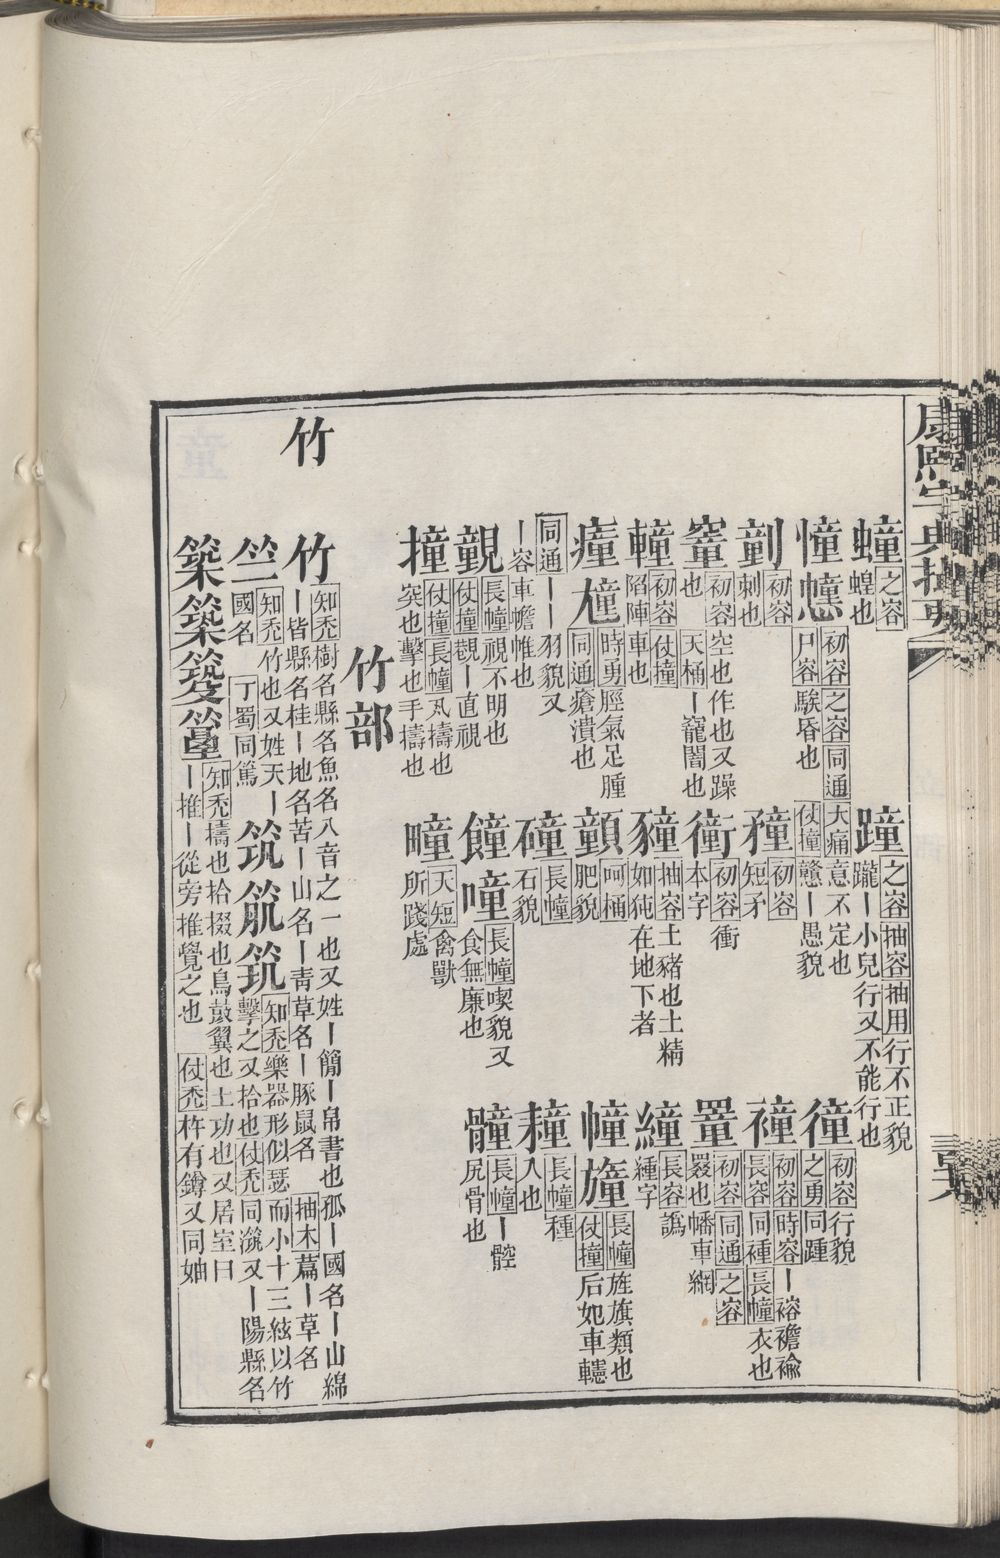 䗰 之容 蝗也
蹱 之容 抽容 抽用 行不正貌
躘丨小兒行又不能行也
憧 初容 之容 同通 大痛 意不定也
尸容 騃昏也 仗撞 戇丨愚貌
徸 初容 行貌
之勇 同踵
剷 初容
刺也
㹿 初容
短矛
褈 初容 時容 丨褣襜褕
長容 同褈 長幢 衣也
初容 空也作也又躁
也 天桶 丨竉闇也
初容 衝
本字
罿 初容 同通 之容
罬也幡車網
初容 仗撞
陷陣車也
抽容 土豬也土精
如㹠在地下者
緟 長容 譌
緟字
㿈 時勇 脛氣足腫
同通 瘡潰也
呵桶
肥貌
幢 長幢 旌旗類也
仗撞 后妃車幰
同通 丨丨羽貌又
丨容車幨帷也
長幢
石貌
長幢 種
入也
覩 長幢 視不明也
仗撞 覩丨直視
噇 長幢 喫貌又
食無廉也
長幢 丨䯚
尻骨也
撞 仗撞 長幢 丮擣也
突也擊也手擣也
疃 天短 禽獸
所踐處
竹部
竹
竹 知禿 樹名縣名魚名八音之一也又姓丨簡丨帛書也孤丨國名丨山綿
丨皆縣名桂丨地名苦丨山名丨靑草名丨豚鼠名 抽木 篙丨草名
竺 知禿 竹也又姓天丨
國名 丁蜀 同篤
筑 知禿 樂器形似瑟而小十三絃以竹
擊之又拾也 仗禿 同㵗又丨陽縣名
築 知禿 擣也拾掇也鳥鼓翼也土功也又居室曰
丨推丨從旁推覺之也 仗禿 杵有鐏又同妯
康熙字典撮要